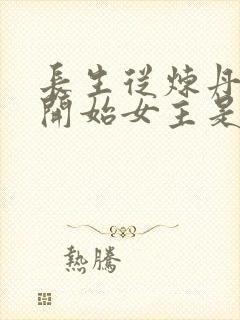 長生從煉丹
開始女主是
熱騰